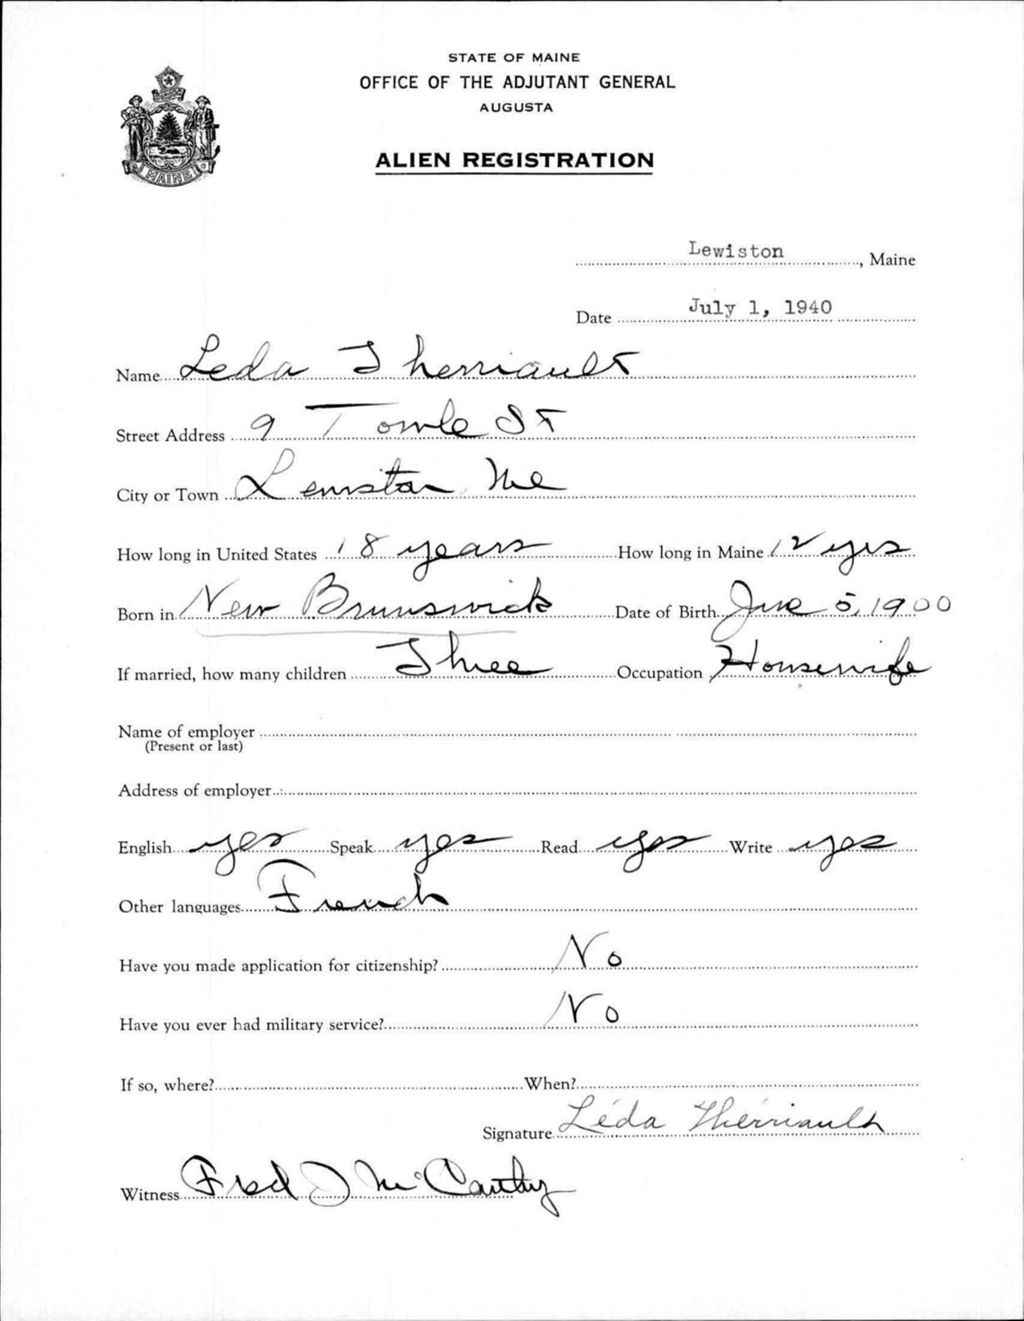 STATE OF MAINE
OFFICE OF THE ADJUTANT GENERAL
AUGUSTA
ALIEN REGISTRATION
MAINE
Lewiston, Maine
Date July 1, 1940
Name Leda Therriault
Street Address 9 Towle St
City or Town Lewiston Me
How long in United States 18 years How long in Maine 12 yrs
Born in New Brunswick Date of Birth June 5, 1900
If married, how many children Three Occupation Housewife
Name of employer
(Present or last)
Address of employer
English yes Speak yes Read yes Write yes
Other languages French
Have you made application for citizenship? No
Have you ever had military service? No
If so, where? When?
Signature Léda Thérriault
Witness Fred J McCarthy